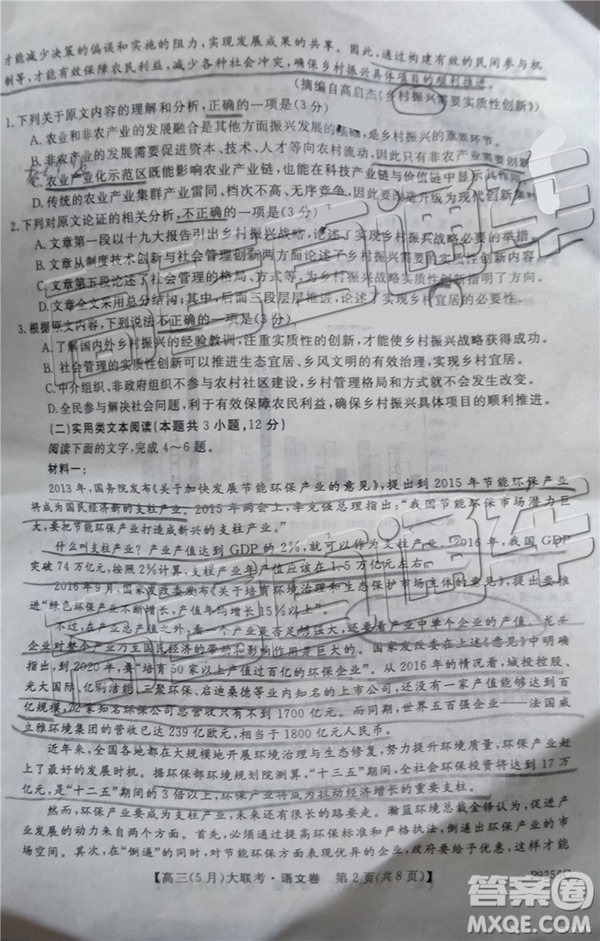 才能减少决策的偏误和实施的阻力，实现发展成果的共享。因此，通过构建有效的民间参与机
制等，才能有效保障农民利益，减少各种社会冲突，确保乡村振兴具体项目的顺利推进。
(摘编自高启杰《乡村振兴需要实质性创新》)
1.下列关于原文内容的理解和分析，正确的一项是(3分)
A.农业和非农产业的发展融合是其他方面振兴发展的基础，是乡村振兴的重要环节。
B.非农产业的发展需要促进资本、技术、人才等要素向农村流动，因此具有
C.农业产业化示范区既能影响农业产业链，也能在科技产业链与价值链中显示
D.传统的农业产业集群产业雷同、档次不高、无序竞争
2.下列对原文论证的相关分析，不正确的一项是(3分)
A.文章第一段以十九大报告引出乡村振兴战略，论述了实现乡村振兴战略必要的举措。
B.文章从制度技术创新与社会管理创新两方面论述了
C.文章第五段论述了社会管理的格局、方式等，为社会管理实质性创新指明了方向。
D.文章采用总分总结构，后面三段层层推进，论述了实现乡村宜居的必要性。
3.根据原文内容，下列说法不正确的一项是(3分)
A.了解国内外乡村振兴的经验教训，注重实质性的创新，才能使乡村振兴战略获得成功。
B.社会管理的实质性创新可以推进生态宜居、乡风文明的有效治理，实现乡村宜居。
C.中介组织、非政府组织参与农村社区建设，对乡村管理格局
D.民众参与解决社会问题，利于有效保障农民利益，确保乡村振兴具体项目的顺利推进。
(二)实用类文本阅读(本题共3小题，12分)
阅读下面的文字，完成4～6题。
材料一：
2013年，国务院发布《关于加快发展节能环保产业的意见》，提出到2015年节能环保产业
将成为国民经济新的支柱产业。2015年两会上，李克强总理指出：“我国节能环保市场潜力巨
大，要把节能环保产业打造成新兴的支柱产业。”
什么叫支柱产业？产业产值达到GDP的2%，就可以称为支柱产业。2016年，我国GDP
突破74万亿元，按照2%计算，支柱产业年产值应该在1.5万亿元左右。
2016年9月，国家发改委发布《关于培育环境治理和生态保护市场主体的意见》，提出要推
进“绿色环保产业不断增长，产值年均增长15%以上”。
不过，产业总产值只是衡量一个产业是否足够强大，还要看产业中单个企业的产值。龙头
企业对整个产业乃至国民经济的带动和影响作用是巨大的。国家发改委在上述《意见》中明确
指出，到2020年，要“培育50家以上产值过百亿的环保企业”。从2016年的情况看，城投控股、
光大国际、亿利洁能、三聚环保、启迪桑德等业内知名的上市公司，还没有一家产值达到百
亿规模，22家知名环保公司总营收只有不到1700亿元。而同时期，世界五百强企业——法国威
立雅环境集团的营收已达239亿欧元，相当于1800亿元人民币。
近年来，全国各地都在大规模地开展环境治理与生态修复，努力提升环境质量，环保产业赶
上了最好的发展时机。据环保部环境规划院测算，“十三五”期间，全社会环保投资将达到17万
亿元，是“十二五”期间的3倍以上，环保产业将成为拉动经济增长的重要支柱。
然而，环保产业要成为支柱产业，未来还有很长的路要走。瀚蓝环境总裁金铎认为，促进产
业发展的动力来自两个方面。首先，必须通过提高环保标准和加强环保执法来倒逼
少落后的产能。其次，在“倒逼”的同时，给环保方面表现优异的企业
【高三(5月)大联考·语文卷　第2页(共8页)】
答案圈
MXQE.COM